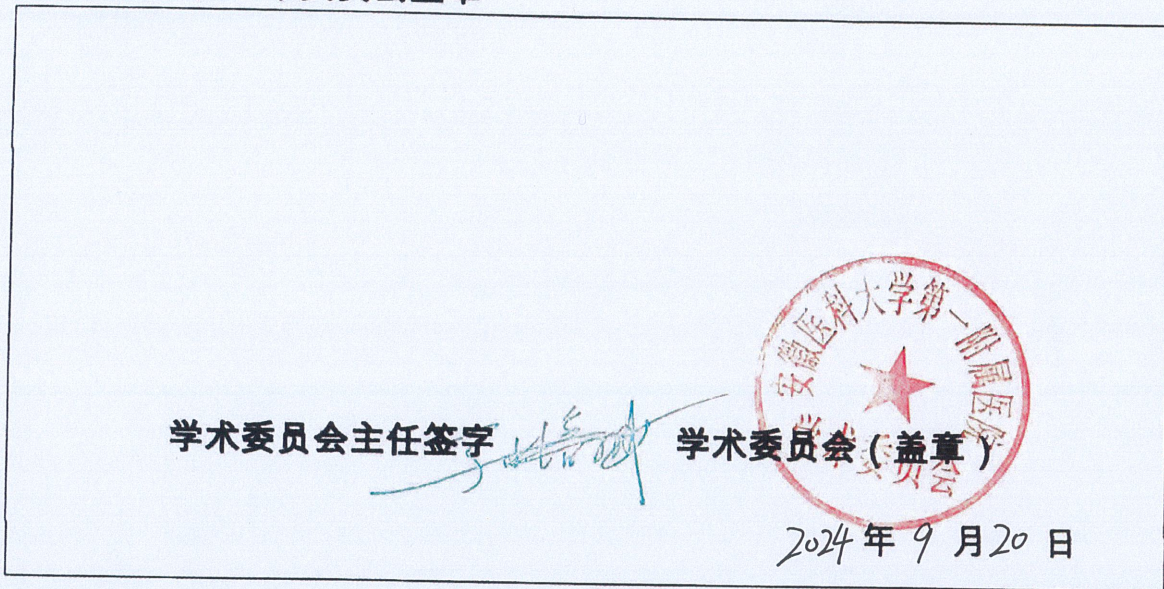 学术委员会主任签字
学术委员会(盖章)
安徽医科大学第一附属医院
学术委员会
2024年9月20日